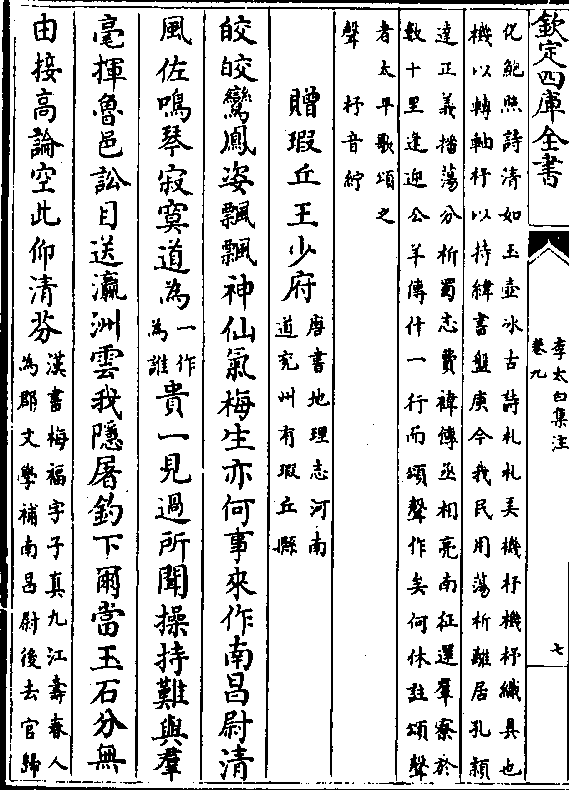 欽定四庫全書
李太白集注
卷九
七
化鮑照詩清如玉壺冰古詩札札弄機杼機杼織具也
機以轉軸杼以持緯書盤庚今我民用蕩析離居孔穎
達正義播蕩分析蜀志費禕傳丞相亮南征還羣寮於
數十里逢迎公羊傳什一行而頌聲作矣何休註頌聲
者太平歌頌之
聲 杼音紵
贈瑕丘王少府唐書地理志河南
道兖州有瑕丘縣
皎皎鸞鳳姿飄飄神仙氣梅生亦何事來作南昌尉清
風佐鳴琴寂寞道為一作
為誰貴一見過所聞操持難與羣
毫揮魯邑訟目送瀛洲雲我隱屠釣下爾當玉石分無
由接高論空此仰清芬漢書梅福字子真九江壽春人
為郡文學補南昌尉後去官歸